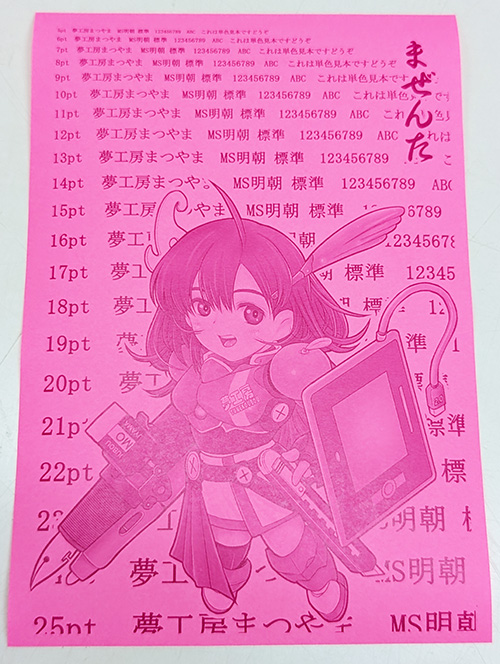 5pt 夢工房まつやま MS明朝 標準 123456789 ABC これは単色見本ですどうぞ
6pt 夢工房まつやま MS明朝 標準 123456789 ABC これは単色見本ですどうぞ
7pt 夢工房まつやま MS明朝 標準 123456789 ABC これは単色見本ですどうぞ
8pt 夢工房まつやま MS明朝 標準 123456789 ABC これは単色見本ですどうぞ
9pt 夢工房まつやま MS明朝 標準 123456789 ABC これは単色見
10pt 夢工房まつやま MS明朝 標準 123456789 ABC これは単色見
11pt 夢工房まつやま MS明朝 標準 123456789 ABC これは
12pt 夢工房まつやま MS明朝 標準 123456789 ABC これは
13pt 夢工房まつやま MS明朝 標準 123456789 ABC こ
14pt 夢工房まつやま MS明朝 標準 123456789 ABC
15pt 夢工房まつやま MS明朝 標準 123456789
16pt 夢工房まつやま 標準 12345678
17pt 夢工 朝 標準 12345
18pt 夢工 月朝 標準 12
19pt 夢工 標準
20pt 夢工
21pt 夢 標準
22pt 夢 標
夢 明朝
夢工 MS明朝
25pt 夢工房まつやま MS明朝
まぜんた
夢工房
MO